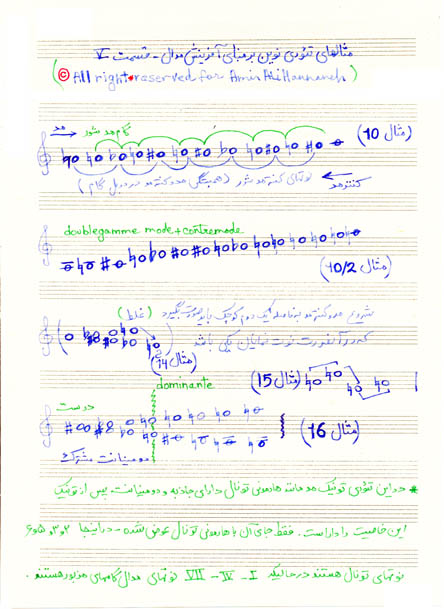 مثالهای تئوری نوین بر مبنای آفرینش مدال - قسمت ۷
(© All right reserved for Amin Ali Hannaneh)
مد گام مد شور (مثال 10)
نوتهای کنتر مد شور (همبستگی مد و کنتر مد در دوبل گام) کنتر مد
doublegamme mode + contremode
(مثال 10/2)
شروع مد و کنتر مد بفاصله یک دوم کوچک باید صورت بگیرد (غلط)
که در آنصورت نوت نمایان یکی باشد
(مثال 14)
dominante (مثال 15)
درست
(مثال 16)
دومینانت مشترک
* در این تئوری تونیک مد مانند هارمونی تونال دارای جاذبه و دومینانت پس از تونیک
این خاصیت را داراست. فقط جای آن با هارمونی تونال عوض شده - در اینجا ۲ و ۳ و ۵ و ۶
نوتهای تونال هستند در حالیکه I - IV - VII نوتهای مدال گامهای مزبور هستند.